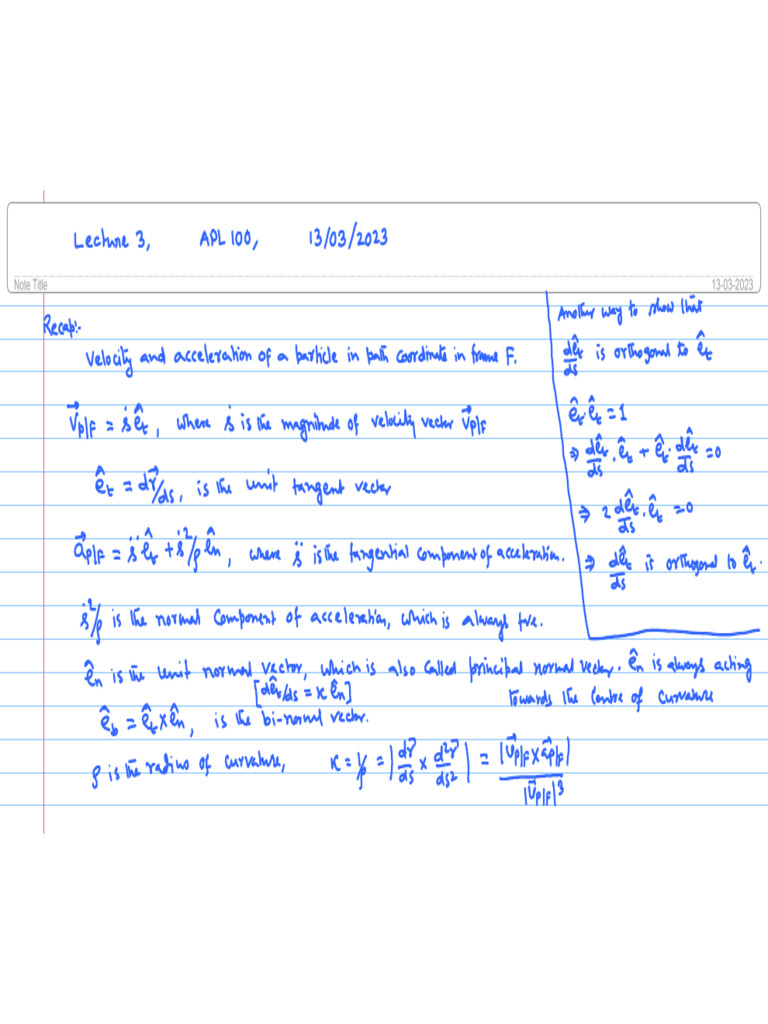 Lecture 3, APL 100, 13/03/2023
Note Title 13-03-2023
Recap:-
Velocity and acceleration of a particle in path coordinate in frame F.
v⃗p|F = ṡ êt, where ṡ is the magnitude of velocity vector v⃗p|F
êt = dr⃗/ds, is the unit tangent vector
a⃗p|F = s̈ êt + ṡ²/ρ ên, where s̈ is the tangential component of acceleration.
ṡ²/ρ is the normal component of acceleration, which is always +ve.
ên is the unit normal vector, which is also called principal normal vector. ên is always acting
[dêt/ds = κ ên] towards the centre of curvature
êb = êt × ên, is the bi-normal vector.
ρ is the radius of curvature, κ = 1/ρ = |dr⃗/ds × d²r⃗/ds²| = |v⃗p|F × a⃗p|F| / |v⃗p|F|³
Another way to show that
dêt/ds is orthogonal to êt
êt · êt = 1
⇒ dêt/ds · êt + êt · dêt/ds = 0
⇒ 2 dêt/ds · êt = 0
⇒ dêt/ds is orthogonal to êt.